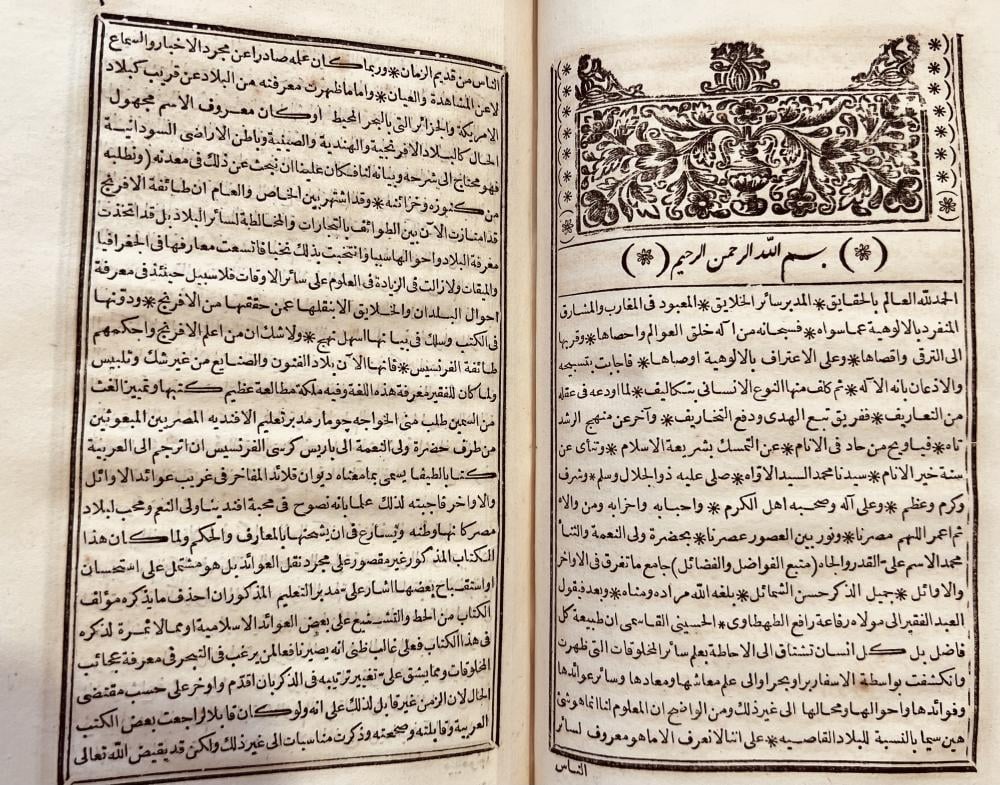 بسم الله الرحمن الرحيم
الحمد لله العالم بالحقايق * المدبر سائر الخلايق * المعبود فى المغارب والمشارق
المنفرد بالالوهية عما سواه * فسبحانه من اله خلق العوالم واحصاها * وقربها
الى الترقى واقصاها * وعلى الاعتراف بالالوهية اوصاها * فاجابت بتسبيحه
والاذعان بانه الاله * ثم كلف منها النوع الانسانى بتكاليف * لما اودعه فى عقله
من التعاريف * ففريق تبع الهدى ودفع التخاريف * وآخر عن منهج الرشد
تاه * فياويح من حاد فى الانام * عن التمسك بشريعة الاسلام * وتناى عن
سنة خير الانام * سيدنا محمد السيد الاواه * صلى عليه ذو الجلال وسلم * وشرف
وكرم وعظم * وعلى آله وصحبه اهل الكرم * واحبابه واحزابه ومن والاه
ثم اعمر اللهم مصرنا * ونور بين العصور عصرنا * بحضرة ولى النعمة والثنا
محمد الاسم على القدر والجاه (منبع الفواضل والفضائل) جامع ما تفرق فى الاواخر
والاوائل * جميل الذكر حسن الشمائل * بلغه الله مراده ومناه * وبعد فيقول
العبد الفقير الى مولاه رفاعة رافع الطهطاوى * الحسينى القاسمى ان طبيعة كل
فاضل بل كل انسان تشتاق الى الاحاطة بعلم سائر المخلوقات التى ظهرت
وانكشفت بواسطة الاسفار برا وبحرا والى علم معاشها ومعادها وسائر عوائدها
وفوائدها واحوالها ومحالها الى غير ذلك ومن الواضح ان المعلوم لنا انما هو شئ
هين سيما بالنسبة للبلاد القاصيه * على اننا لا نعرف الا ما هو معروف لسائر
الناس
الناس من قديم الزمان * وربما كان علمه صادرا عن مجرد الاخبار والسماع
لا عن المشاهدة والعيان * واما ما ظهرت معرفته من البلاد عن قريب كبلاد
الامريكة والجزائر التى بالبحر المحيط او كان معروف الاسم مجهول
الحال كالبلاد الافرنجية والهندية والصينية وباطن الاراضى السودانية
فهو محتاج الى شرحه وبيانه لنا فكان علينا ان نبحث عن ذلك فى معدنه (ونطلبه
من كنوزه وخزائنه * وقد اشتهر بين الخاص والعام ان طائفة الافرنج
قد امتازت الآن بين الطوائف بالتجارات والمخالطة لسائر البلاد بل قد اتخذت
معرفة البلاد واحوالها سببا وانتجت بذلك فاتسعت معارفها فى الجغرافيا
والميقات ولا زالت فى الزيادة فى العلوم على سائر الاوقات فلا سبيل حينئذ فى معرفة
احوال البلدان والخلايق الا بنقلها عن حققها من الافرنج * ودونها
فى الكتب وسلك فى تبيانها اسهل نهج * ولا شك ان من اعلم الافرنج واحكمهم
طائفة الفرنسيس * فانها الآن بلاد الفنون والصنايع من غير شك وتلبيس
ولما كان للفقير معرفة هذه اللغة وفيه ملكة مطالعة عظيم كتبها وتمييز الغث
من السمين طلب منى الخواجه جومار مدير تعليم الافنديه المصريين المبعوثين
من طرف حضرة ولى النعمة الى باريس كرسى الفرنسيس ان اترجم الى العربية
كتابا لطيفا يسمى بما معناه ديوان قلائد المفاخر فى غريب عوائد الاوائل
والاواخر فاجبته لذلك علما بانه نصوح فى محبة افندينا ولى النعم ومحب لبلاد
مصر كانها وطنه ويسارع فى ان يشحنها بالمعارف والحكم ولما كان هذا
الكتاب المذكور غير مقصور على مجرد نقل العوائد بل هو مشتمل على استحسان
او استقباح بعضها اشار على مدير التعليم المذكور ان احذف ما يذكره مؤلف
الكتاب من الحط والتشنيع على بعض العوائد الاسلامية او مما لا ثمرة لذكره
فى هذا الكتاب فعلى غالب ظنى انه يصير نافعا لمن يرغب فى التبحر فى معرفة عجائب
المخلوقات ومما يشق على تغيير ترتيبه فى الذكر بان اقدم واوخر على حسب مقتضى
الحال لان الزمن غير قابل لذلك على انه ولو كان قابلا لراجعت بعض الكتب
العربية وقابلته وصححته وذكرت مناسبات الى غير ذلك ولكن قد يقيض الله تعالى